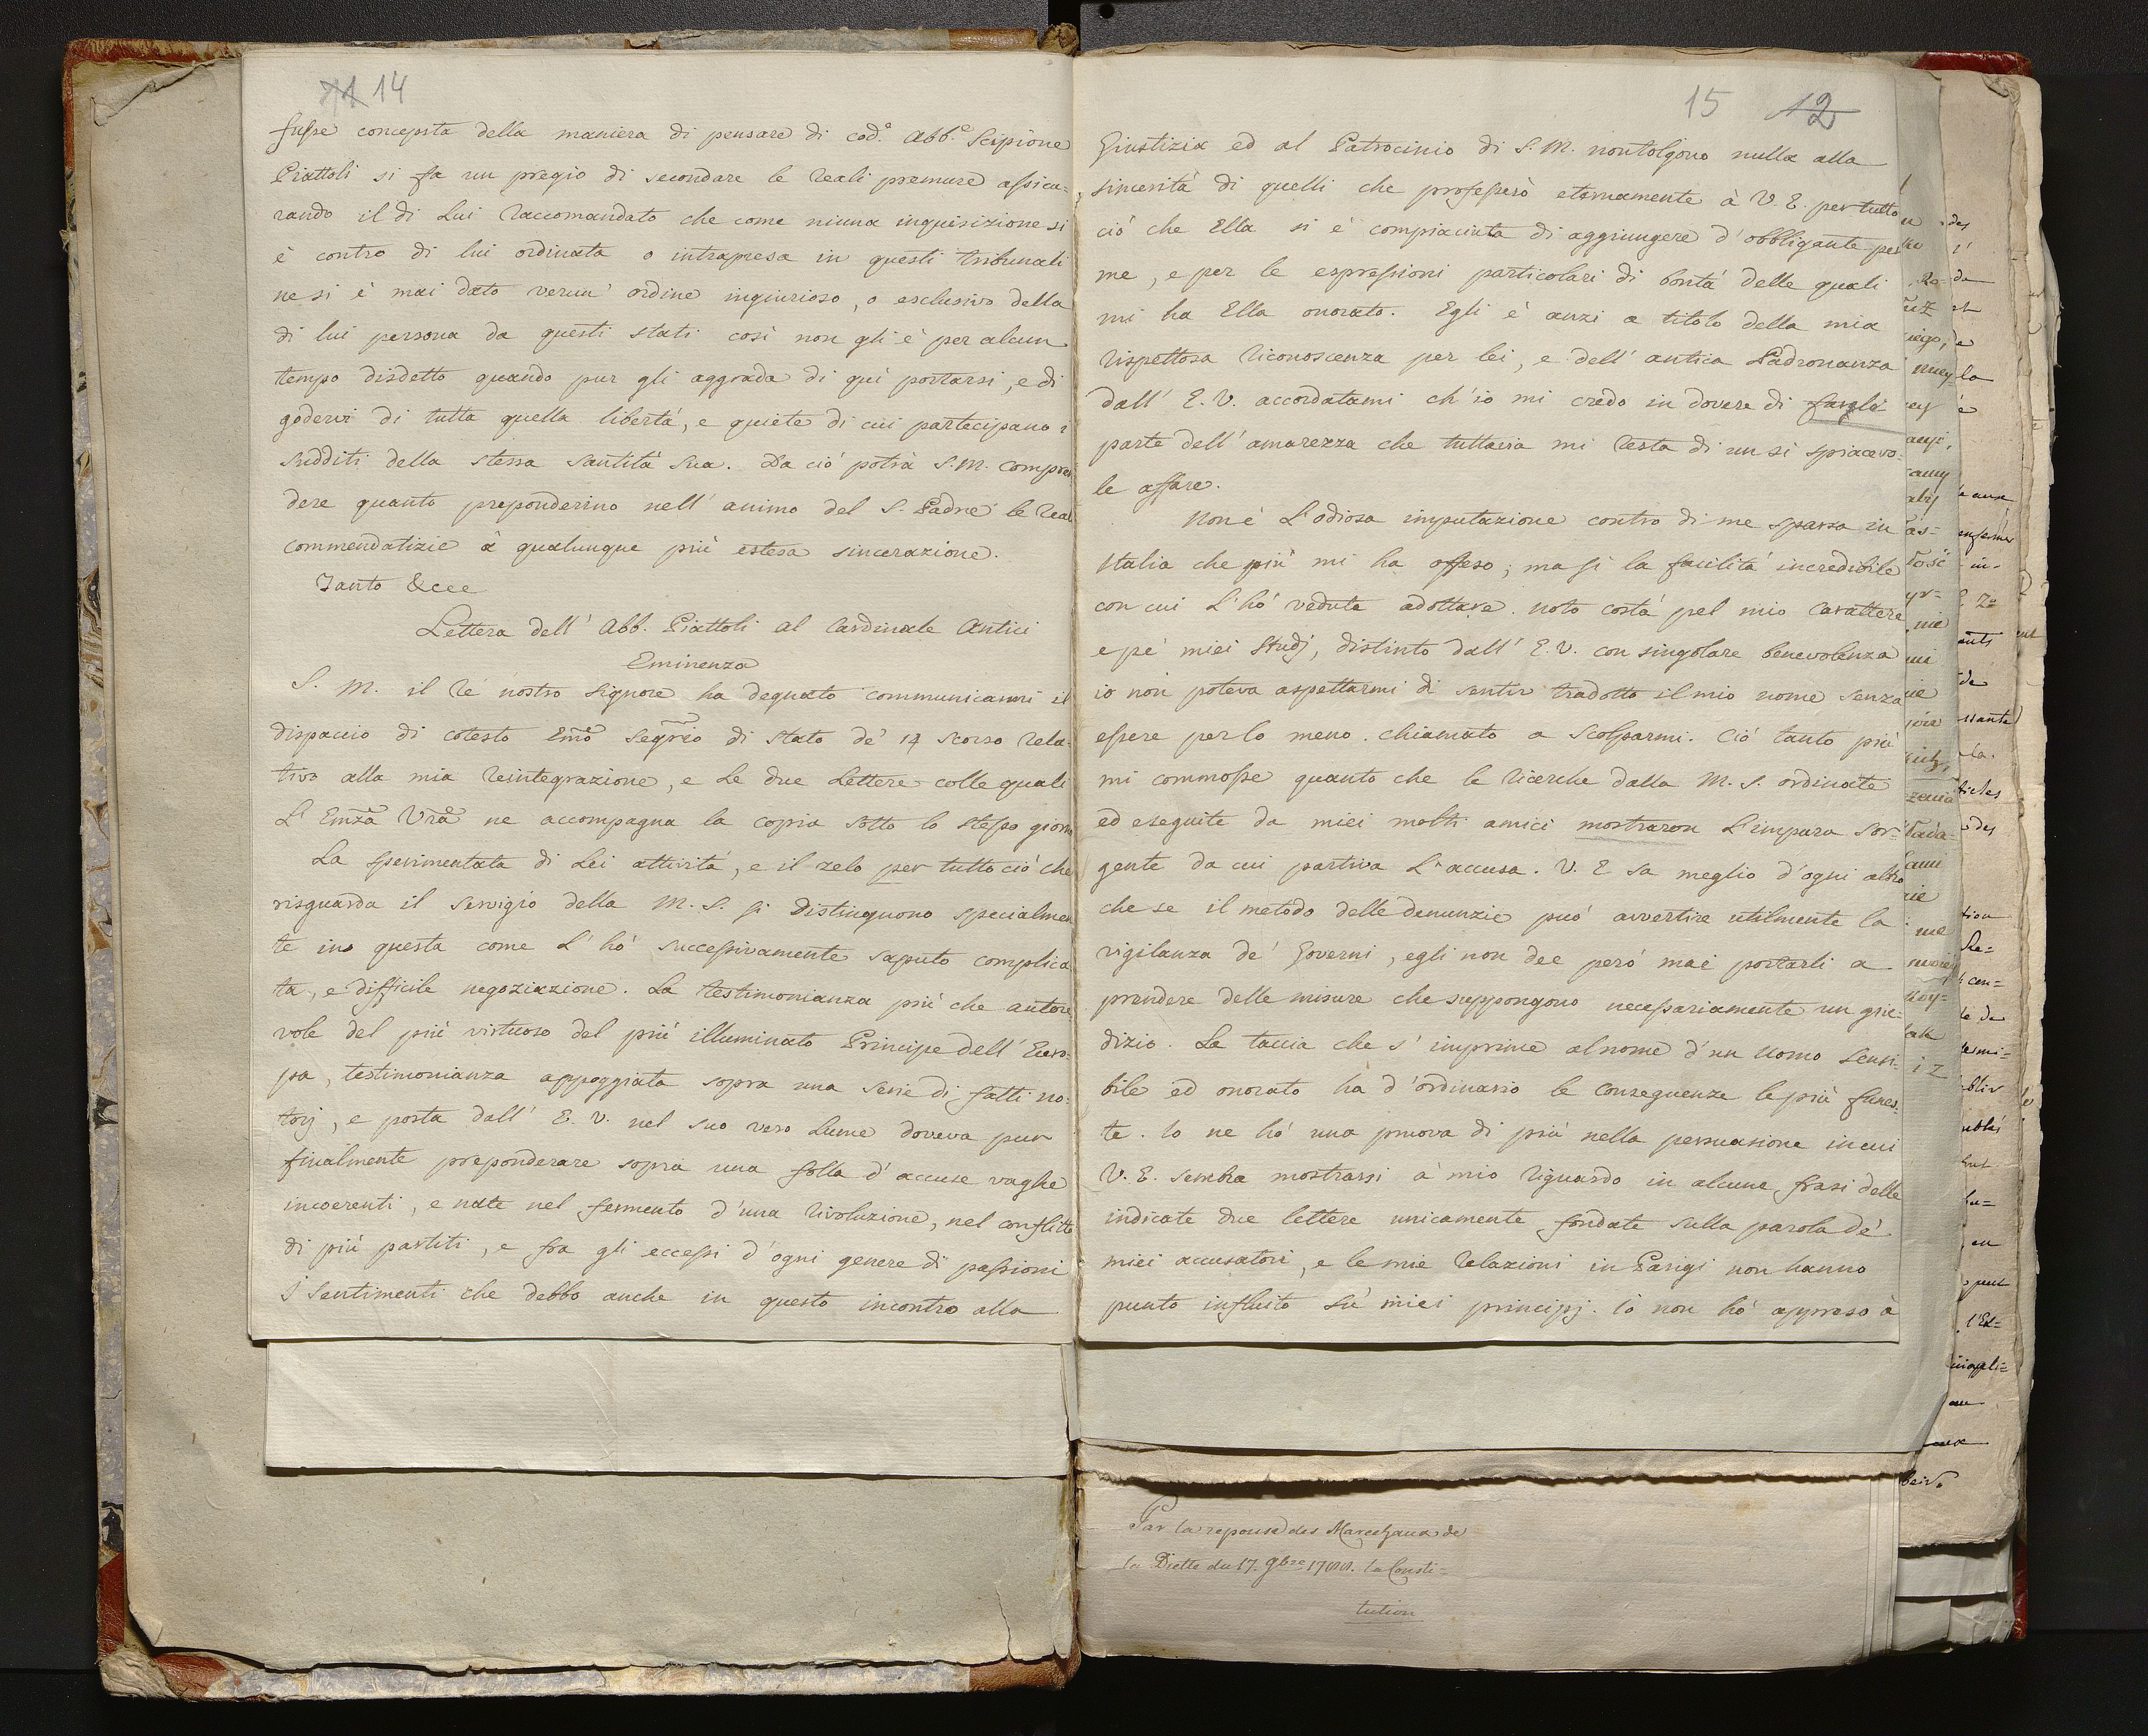 14
fusse concepita della maniera di pensare di cod.º Abb.e Scipione
Piattoli si fa un pregio di secondare le reali premure assicu=
rando il di Lui raccomandato che come niuna inquisizione si
è contro di lui ordinata o intrapresa in questi tribunali
ne si è mai dato verun' ordine ingiurioso, o esclusivo della
di lui persona da questi stati così non gli è per alcun
tempo disdetto quando pur gli aggrada di quì portarsi, e di
godervi di tutta quella libertà, e quiete di cui partecipano i
sudditi della stessa santità sua. Da ciò potrà S. M. compren
dere quanto preponderino nell' animo del S. Padre le Reali
commendatizie à qualunque più estesa sincerazione.
Tanto &cee
Lettera dell' Abb. Piattoli al Cardinale Antici
Eminenza
S. M. il rè nostro Signore ha degnato communicarmi il
dispaccio di cotesto Emo Segrio di stato de' 14 scorso rela=
tivo alla mia reintegrazione, e le due Lettere colle quali
L' Emza Vra ne accompagna la copia sotto lo stesso giorno
La sperimentata di Lei attività, e il zelo per tutto ciò che
risguarda il servigio della M. S. si distinguono specialmen
te in questa come L' hò successivamente saputo complica
ta, e difficile negoziazione. La testimonianza più che autore
vole del più virtuoso del più illuminato Principe dell' Euro=
pa, testimonianza appoggiata sopra una serie di fatti no=
torj, e porta dall' E. V. nel suo vero Lume doveva pur
finalmente preponderare sopra una folla d' accuse vaghe
incoerenti, e nate nel fermento d' una rivoluzione, nel conflitto
di più partiti, e fra gli eccessi d' ogni genere di passioni
I sentimenti che debbo anche in questo incontro alla
15 12
Giustizia ed al Patrocinio di S. M. non tolgono nulla alla
sincerità di quelli che professerò eternamente à V. E. per tutto
ciò che Ella si è compiaciuta di aggiungere d' obbligante per
me, e per le espressioni particolari di bontà delle quali
mi ha Ella onorato. Egli è anzi a titolo della mia
rispettosa riconoscenza per lei, e dell' antica Padronanza
dall' E. V. accordatami ch' io mi credo in dovere di fargli
parte dell' amarezza che tuttavia mi resta di un sì spiacevo=
le affare.
Non è L' odiosa imputazione contro di me sparsa in
Italia che più mi ha offeso; ma si la facilità incredibile
con cui L' hò veduta adottare. noto costà pel mio Carattere
e pe' miei Studj, distinto dall' E. V. con singolare benevolenza
io non poteva aspettarmi di sentir tradotto il mio nome senza
essere per lo meno chiamato a Scolparmi. Ciò tanto più
mi commosse quanto che le ricerche dalla M. S. ordinate
ed eseguite da miei molti amici mostraron L' impura sor=
gente da cui partiva L' accusa. V. E sa meglio d' ogni altro
che se il metodo delle denunzie può avvertire utilmente la
vigilanza de' Governi, egli non dee però mai portarli a
prendere delle misure che suppongono necessariamente un giu=
dizio. La taccia che s' imprime al nome d' un uomo sensi=
bile ed onorato ha d' ordinario le conseguenze le più funes=
te. Io ne hò una pruova di più nella persuasione in cui
V. E. sembra mostrarsi à mio riguardo in alcune frasi delle
indicate due lettere unicamente fondate sulla parola de'
miei accusatori, e le mie relazioni in Parigi non hanno
punto influito sù miei principj. Io non hò appreso à
Par la reponse des Marechaux de
la Diette du 17. 9bre 1788. la Consti=
tution